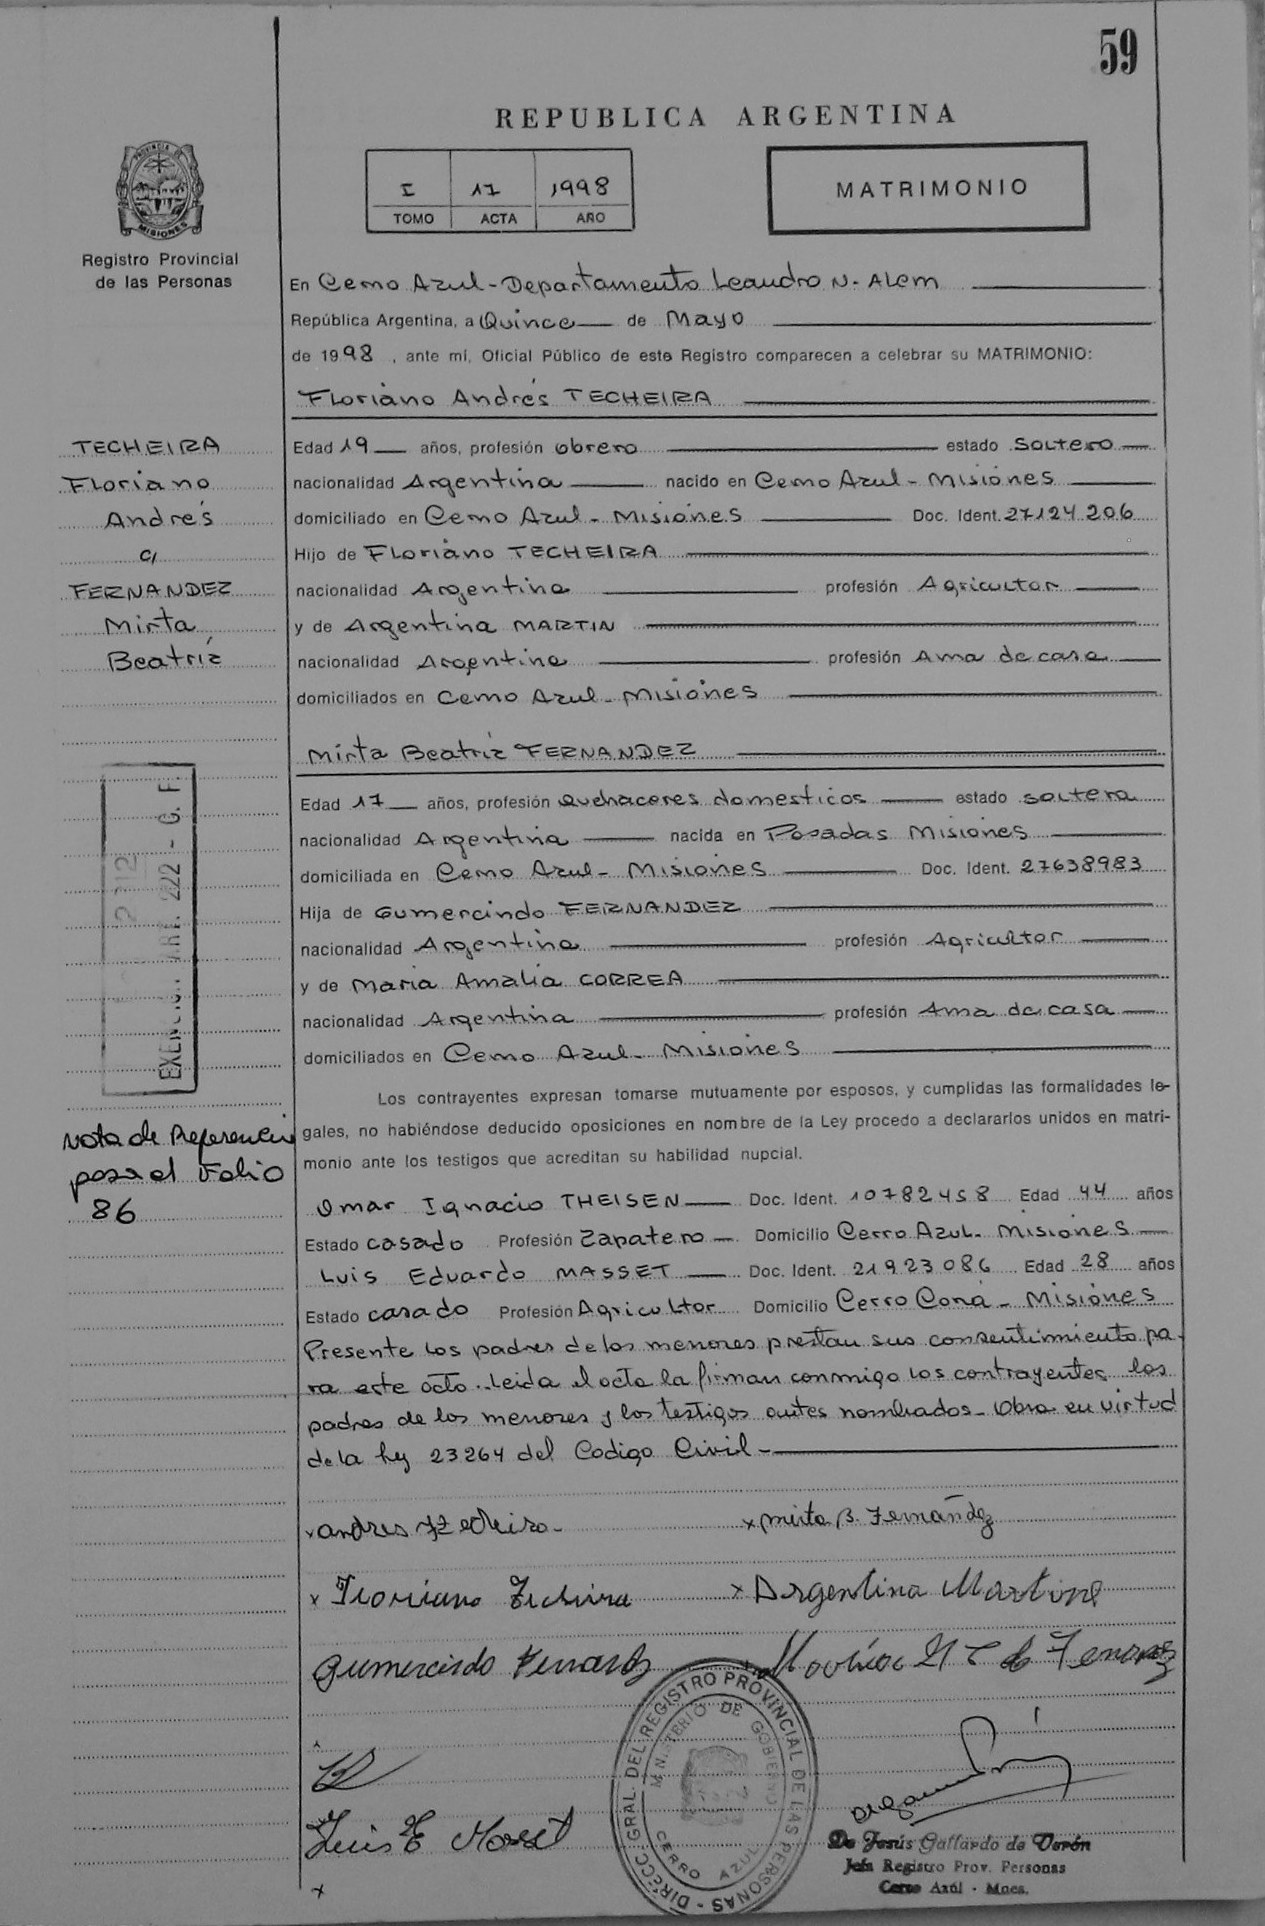 59
REPUBLICA ARGENTINA
I 17 1998
TOMO ACTA AÑO
MATRIMONIO
PROVINCIA DE
MISIONES
Registro Provincial
de las Personas
En Cerro Azul - Departamento Leandro N. Alem
República Argentina, a Quince de Mayo
de 1998, ante mí, Oficial Público de este Registro comparecen a celebrar su MATRIMONIO:
Floriano Andrés TECHEIRA
TECHEIRA
Floriano
Andrés
c/
FERNANDEZ
Mirta
Beatríz
Edad 19 años, profesión obrero estado soltero
nacionalidad Argentina nacido en Cerro Azul - Misiones
domiciliado en Cerro Azul - Misiones Doc. Ident. 27124206
Hijo de Floriano TECHEIRA
nacionalidad Argentina profesión Agricultor
y de Argentina MARTIN
nacionalidad Argentina profesión Ama de casa
domiciliados en Cerro Azul - Misiones
Mirta Beatríz FERNANDEZ
Edad 17 años, profesión Quehaceres domesticos estado soltera
nacionalidad Argentina nacida en Posadas Misiones
domiciliada en Cerro Azul - Misiones Doc. Ident. 27638983
Hija de Gumercindo FERNANDEZ
nacionalidad Argentina profesión Agricultor
y de Maria Amalia CORREA
nacionalidad Argentina profesión Ama de casa
domiciliados en Cerro Azul - Misiones
EXENCION ART. 222 - G. F.
Nota de Referencia
pasa al Folio
86
Los contrayentes expresan tomarse mutuamente por esposos, y cumplidas las formalidades le-
gales, no habiéndose deducido oposiciones en nombre de la Ley procedo a declararlos unidos en matri-
monio ante los testigos que acreditan su habilidad nupcial.
Omar Ignacio THEISEN Doc. Ident. 10782458 Edad 44 años
Estado casado Profesión Zapatero Domicilio Cerro Azul - Misiones
Luis Eduardo MASSET Doc. Ident. 21923086 Edad 28 años
Estado casado Profesión Agricultor Domicilio Cerro Corá - Misiones
Presente los padres de los menores prestan sus consentimiento pa-
ra este acto. Leida el acta la firman conmigo los contrayentes los
padres de los menores y los testigos antes nombrados - Obra en virtud
de la ley 23264 del Codigo Civil -
x andres techeira x Mirta B. Fernández
x Floriano Techeira x Argentina Martine
Gumercindo x Maria
x
Luis E Masset
x
DIRECC. GRAL. DEL REGISTRO PROVINCIAL DE LAS PERSONAS
MINISTERIO DE GOBIERNO
CERRO AZUL
De Jesús Gallardo de Verón
Jefa Registro Prov. Personas
Cerro Azúl - Mnes.